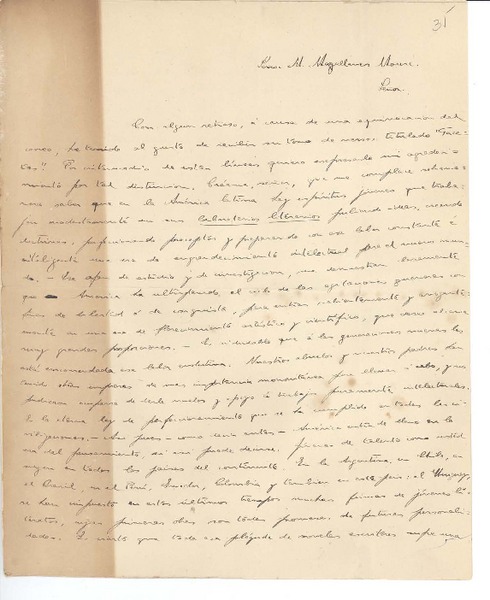 31
Señor M. Magallanes Moure.
Señor:
Con algun retraso, á causa de una equivocacion del
correo, he tenido el gusto de recibir su tomo de versos, titulado "Face-
tas". Por intermedio de estas líneas quiero expresarle mi agradeci-
miento por tal distincion. Créame, señor, que me complace sobrema-
nera saber que en la América latina hay espíritus jóvenes que traba-
jan modestamente en sus laboratorios literarios puliendo ideas, creando
doctrinas, perfeccionando preceptos y preparando con esa labor constante é
inteligente una era de engrandecimiento intelectual para el nuevo mun-
do. - Ese afan de estudio y de investigacion, me demuestran claramente
que - América ha ultrapasado, el ciclo de las agitaciones guerreras con
fines de libertad ó de conquista, para entrar valientemente y
en una era de florecimiento artístico y científico, que debe alcanzar
muy grandes proporciones. - Es indudable que á las generaciones nuevas les
está encomendada esa labor evolutiva. Nuestros abuelos y nuestros padres han
tenido otras empresas de mas importancia momentánea que llevar á cabo, y no
pudieron ocuparse de darle vuelos y apoyo al trabajo puramente intelectual.
Es la eterna ley de perfeccionamiento que se ha cumplido en todas las ci-
vilizaciones. - Ahora pues - como decía antes - América entra de lleno en la
vida del pensamiento, si asi puede decirse. Jóvenes de talento
surgen en todos los países del continente. En la Argentina, en Chile, en
el Brasil, en el Perú, Ecuador, Colombia y tambien en este país: el Uruguay,
se han impuesto en estos últimos tiempos muchas firmas de jóvenes li-
teratos, cuyas primeras obras son todas promesas de futuras personali-
dades. Es cierto que toda esa pléyade de noveles escritores sufre una